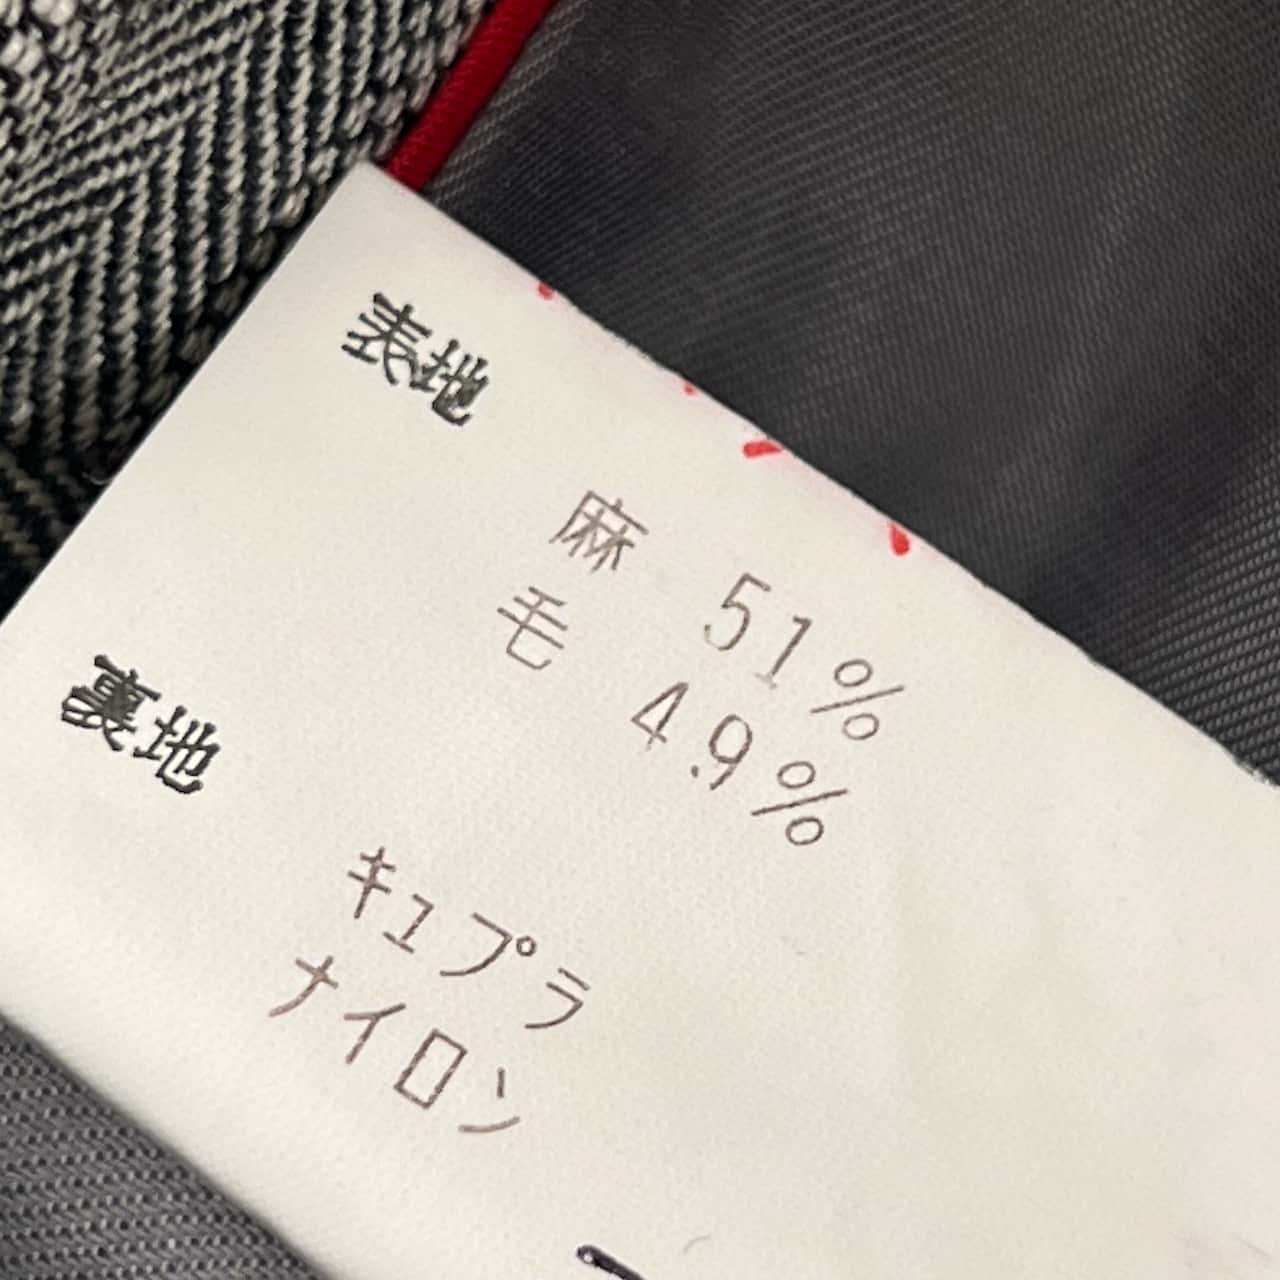 表地
麻 51%
毛 49%
裏地
キュプラ
ナイロン